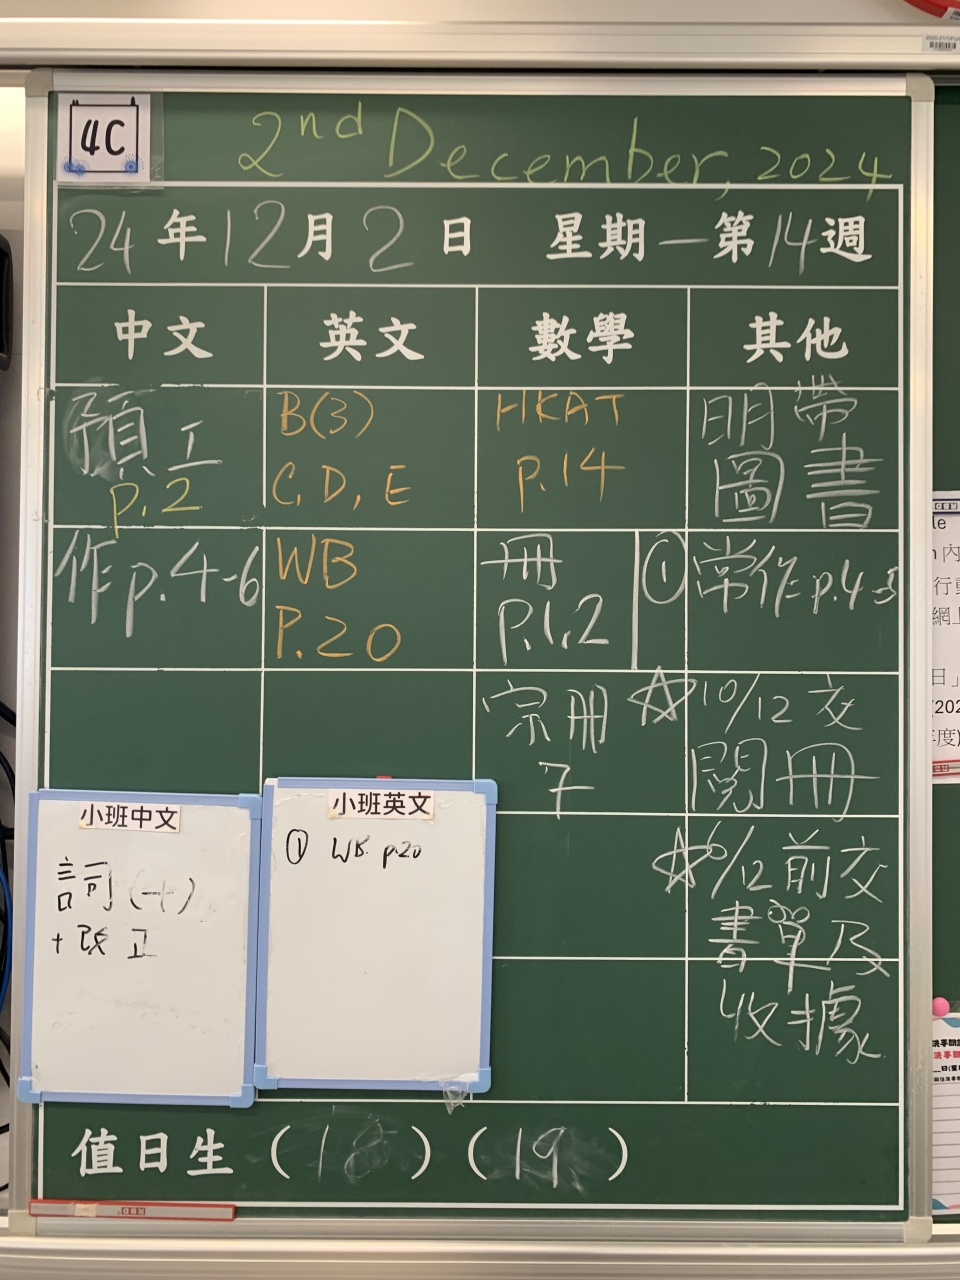 4C
2nd December, 2024
24年12月2日 星期一 第14週
中文 英文 數學 其他
預工
p.2
B(3)
C, D, E
HKAT
p.14
明帶
圖書
作p.4-6
WB
P.20
冊
P.1,2
① 常作p.4-5
宗冊
7
☆10/12交
閱冊
小班中文
詞(十)
+改正
小班英文
① WB p.20
/12前交
書單及
收據
值日生 (18) (19)